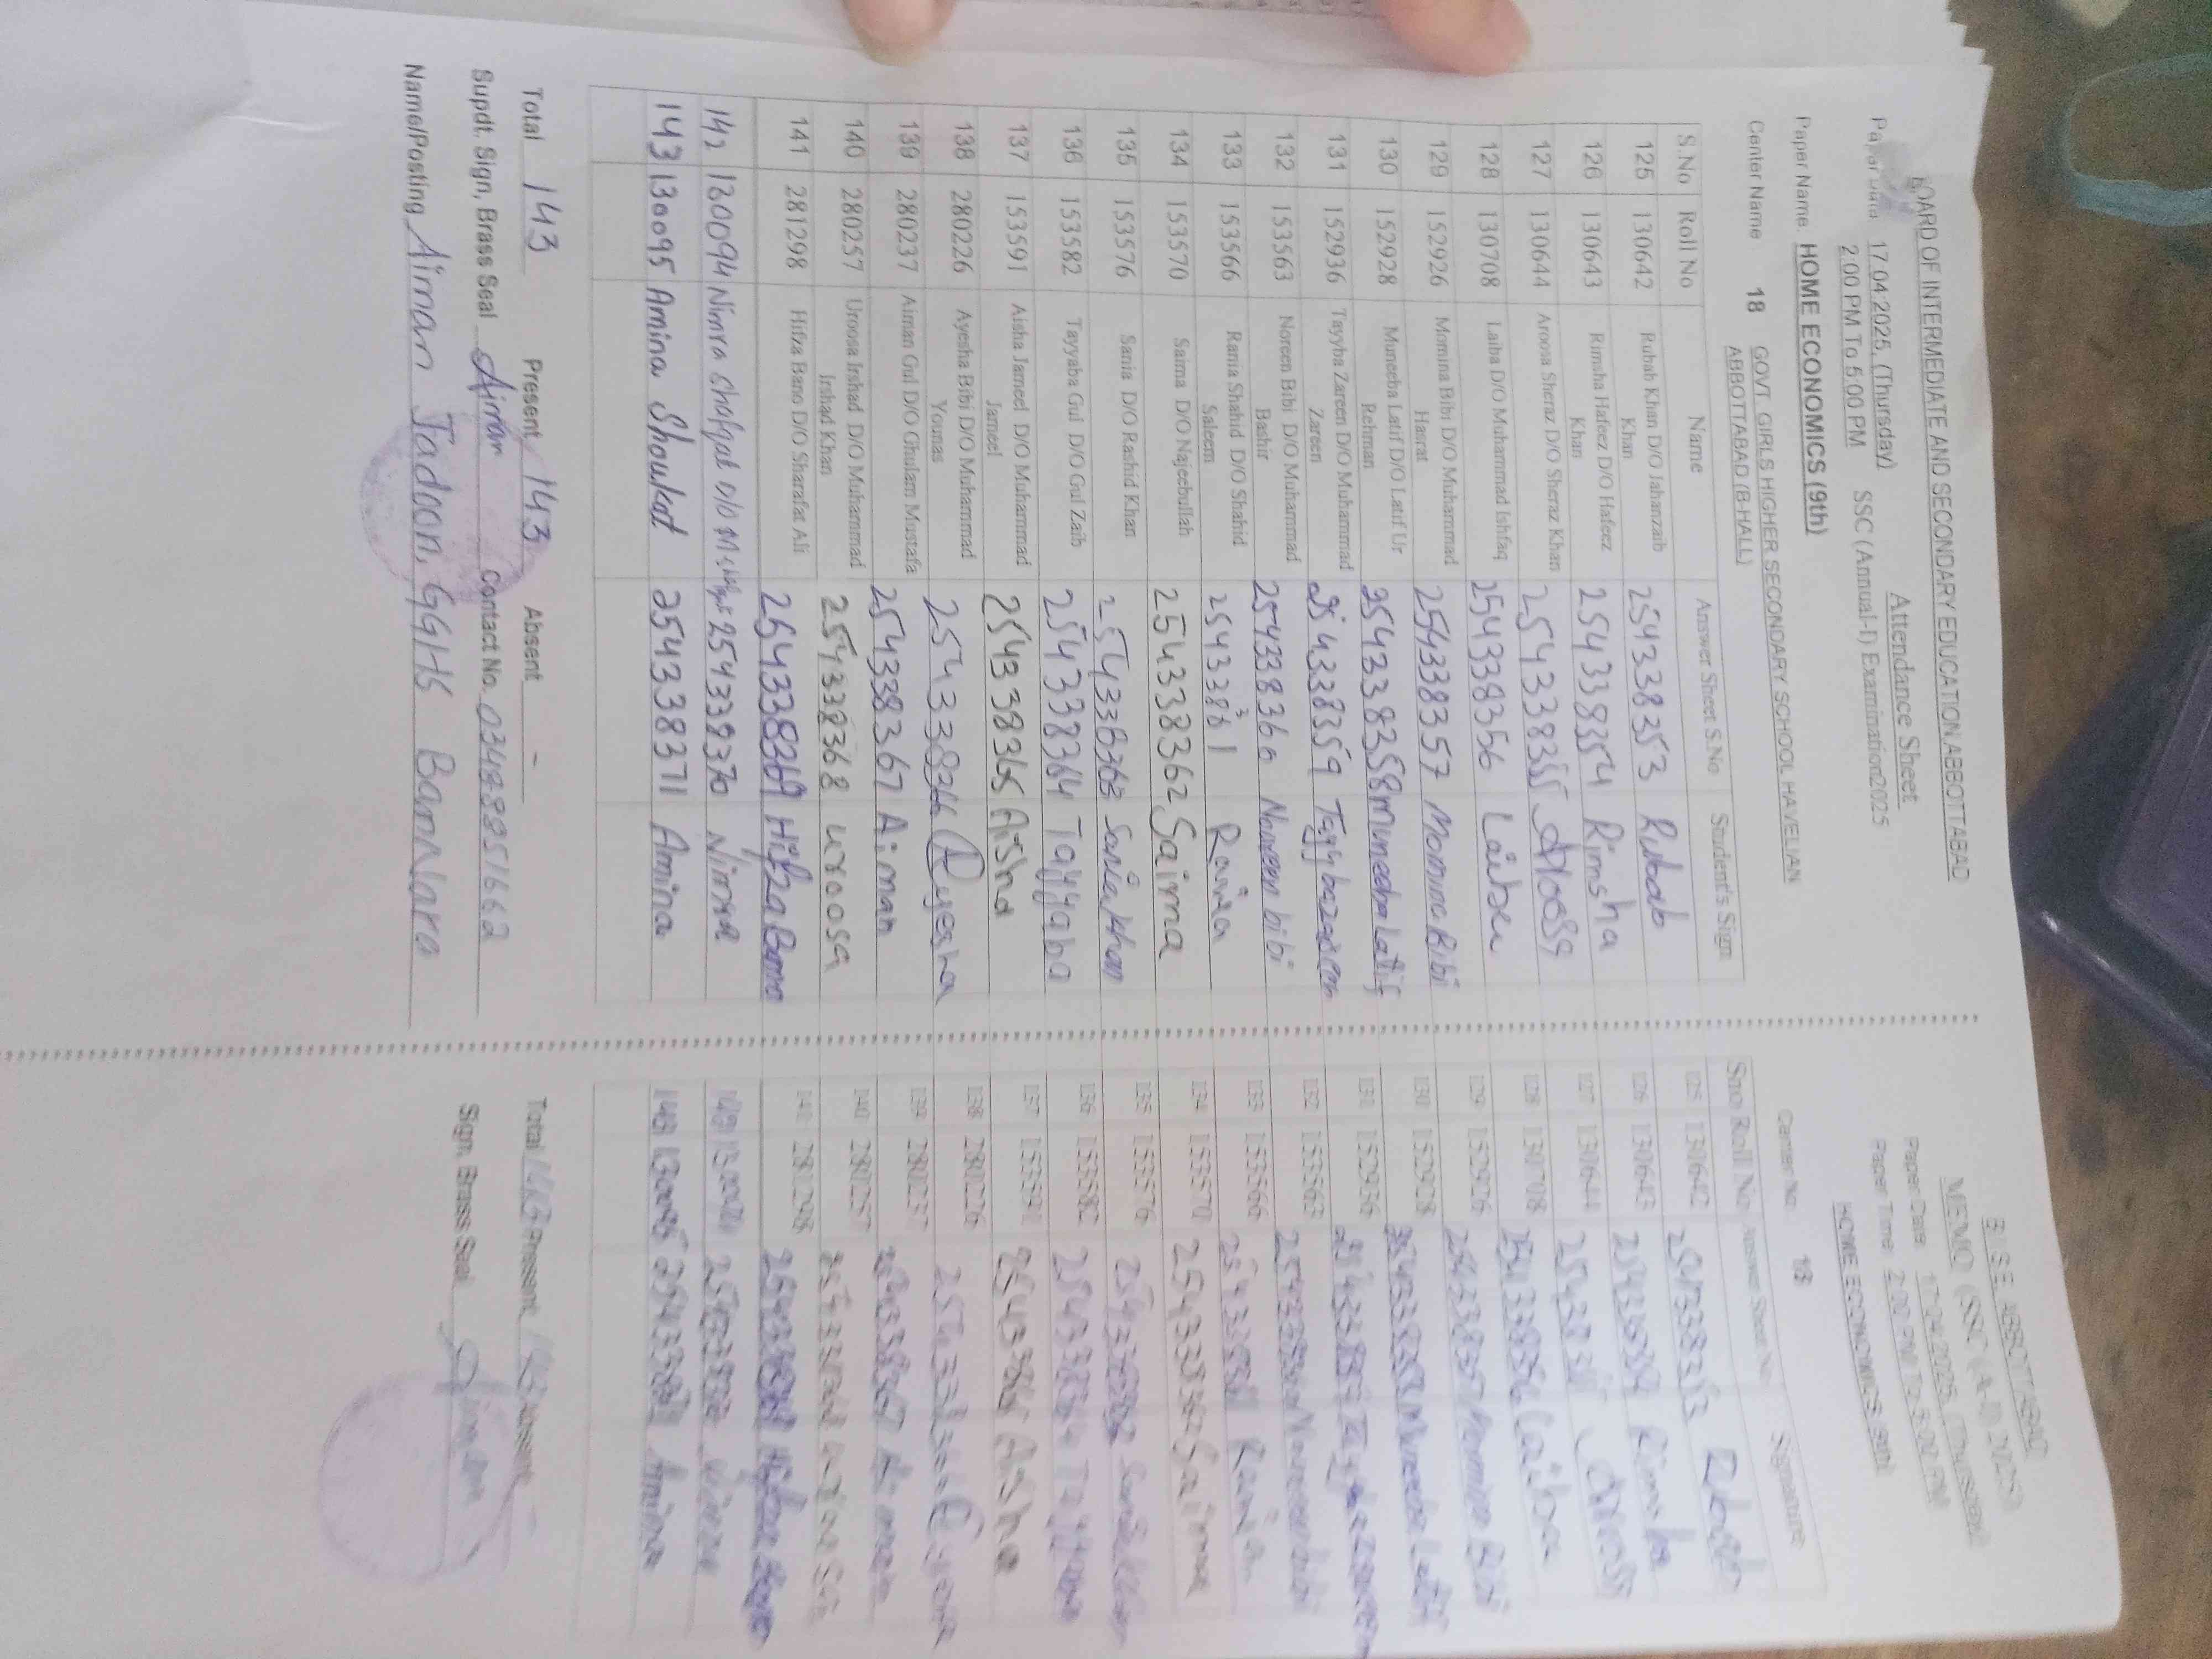 BOARD OF INTERMEDIATE AND SECONDARY EDUCATION, ABBOTTABAD
Attendance Sheet
17.04.2025, (Thursday) SSC (Annual-I) Examination2025
2:00 PM To 5:00 PM
Paper Name. HOME ECONOMICS (9th)
Center Name 18 GOVT. GIRLS HIGHER SECONDARY SCHOOL HAVELIAN
ABBOTTABAD (B-HALL)
S.No Roll No Name Answer Sheet S.No Student's Sign
125 130642 Rubab Khan D/O Jahanzaib Khan 254338353 Rubab
126 130643 Rimsha Hafeez D/O Hafeez Khan 254338354 Rimsha
127 130644 Aroosa Sheraz D/O Sheraz Khan 254338355 Aroosa
128 130708 Laiba D/O Muhammad Ishfaq 254338356 Laiba
129 152926 Momina Bibi D/O Muhammad Hasrat 254338357 Momina Bibi
130 152928 Muneeba Latif D/O Latif Ur Rehman 254338358 Muneeba Latif
131 152936 Tayyba Zareen D/O Muhammad Zareen 254338359 Tayybazareen
132 153563 Noreen Bibi D/O Muhammad Bashir 254338360 Noreen bibi
133 153566 Rania Shahid D/O Shahid Saleem Rania
134 153570 Saima D/O Najeebullah 254338362 Saima
135 153576 Sania D/O Rashid Khan 254338363 Sania khan
136 153582 Tayyaba Gul D/O Gul Zaib 254338364 Tayyaba
137 153591 Aisha Jameel D/O Muhammad Jameel 254338365 Aisha
138 280226 Ayesha Bibi D/O Muhammad Younas 254338366 Ayesha
139 280237 Aiman Gul D/O Ghulam Mustafa 254338367 Aiman
140 280257 Uroosa Irshad D/O Muhammad Irshad Khan 254338368 Uroosa
141 281298 Hifza Bano D/O Sharafat Ali 254338369 Hifza Bano
142 130094 Nimra Shafqat D/O 254338370 Nimra
143 130095 Amina Shoukat 254338371 Amina
Total 143 Present 143 Absent -
Supdt. Sign, Brass Seal Aiman Contact No. 03488951662
Name/Posting Aiman Jadoon, GGHS BanNara
B.I.S.E. ABBOTTABAD
MEMO (SSC (A-I) 2025)
Paper Date: 17.04.2025, (Thursday)
Paper Time: 2:00 PM To 5:00 PM
HOME ECONOMICS (9th)
Center No. 18
Sno Roll No Answer Sheet No. Signature
125 130642 254338353 Rubab
126 130643 Rimsha
127 130644 Aroosa
128 130708 254338356 Laiba
129 152926 254338357 Momina Bibi
130 152928 254338358 Muneeba Latif
131 152936
132 153563
133 153566 Rania
134 153570 254338362 Saima
135 153576
136 153582 254338364 Tayyaba
137 153591 Aisha
138 280226 Ayesha
139 280237 254338367 Aiman
140 280257
141 281298
142 130094 Nimra
143 130095 Amina
Total 143 Present 143 Absent -
Sign. Brass Seal Aiman